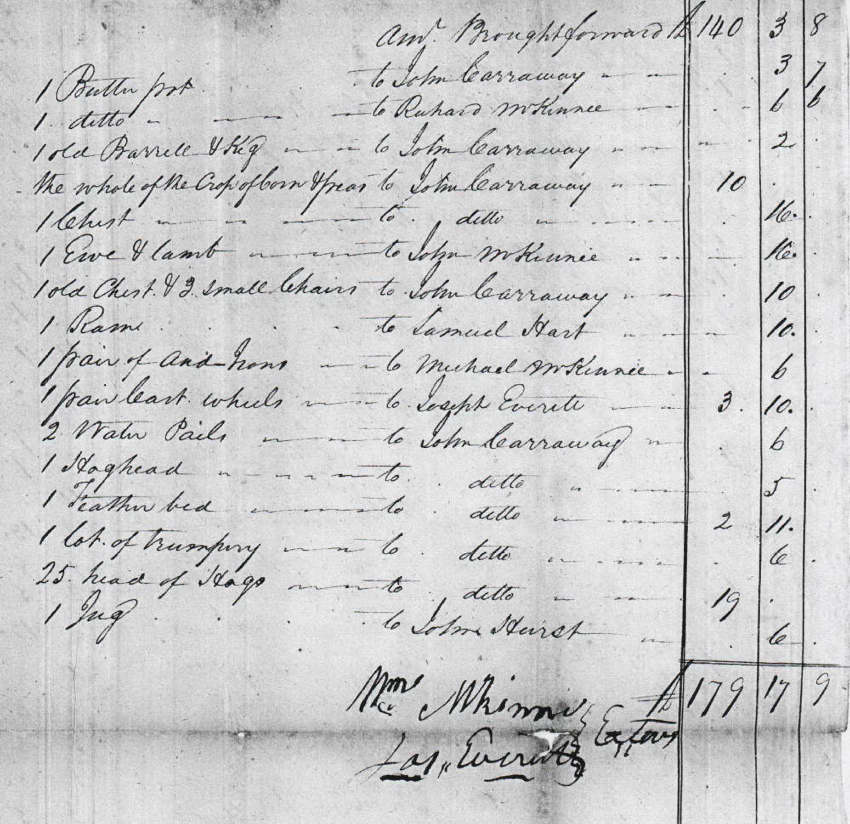 Amt. Brought forward £ 140 3 8
1 Butter pot to John Carraway 3 7
1 ditto to Richard McKinnee 6 6
1 old Barrell & Keg to John Carraway 2
the whole of the Crop of Corn & peas to John Carraway 10
1 Chest to ditto 16
1 Ewe & lamb to John McKinnee 16
1 old Chest & 3 small Chairs to John Carraway 10
1 Ram to Samuel Hart 10
1 pair of And-Irons to Michael McKinnee 6
1 pair Cart wheels to Joseph Everett 3 10
2 Water Pails to John Carraway 6
1 Hoghead to ditto 5
1 Feather bed to ditto 2 11
1 lot of trumpery to ditto 6
25 head of Hogs to ditto 19
1 Jug to John Hurst 6
£ 179 17 9
Wm McKinne
Jos Everett Exetors